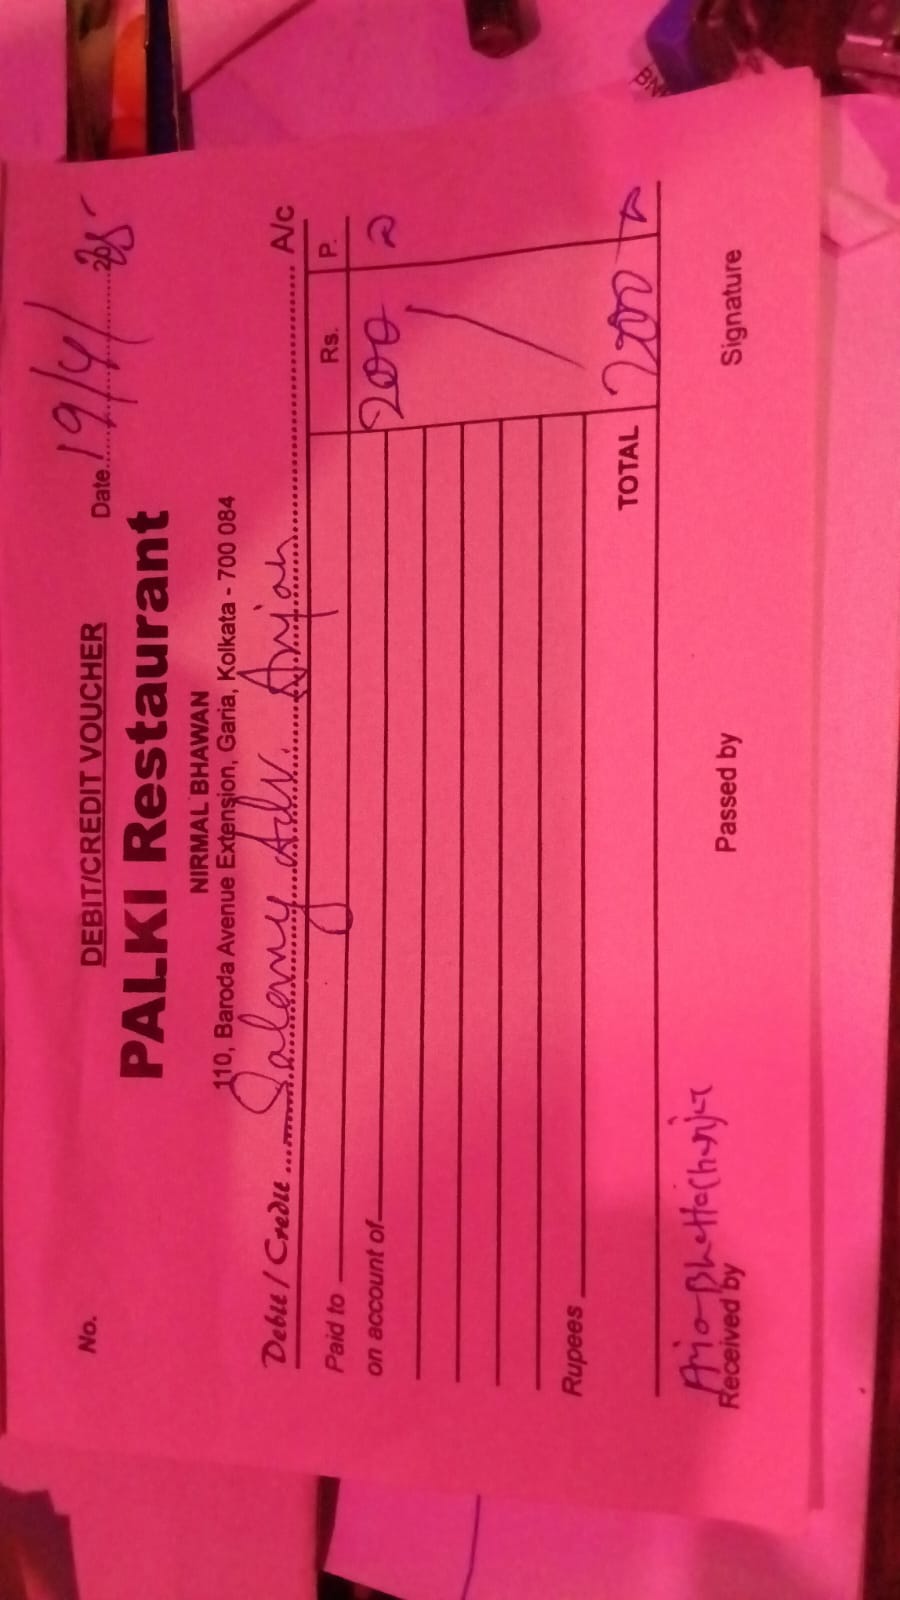 No.
DEBIT/CREDIT VOUCHER
Date 19/4/2025
PALKI Restaurant
NIRMAL BHAWAN
110, Baroda Avenue Extension, Garia, Kolkata - 700 084
Debit / Credit Salary Adv. Anjan A/c
Paid to Rs. P.
on account of 200
Rupees
TOTAL 200
Received by Passed by Signature